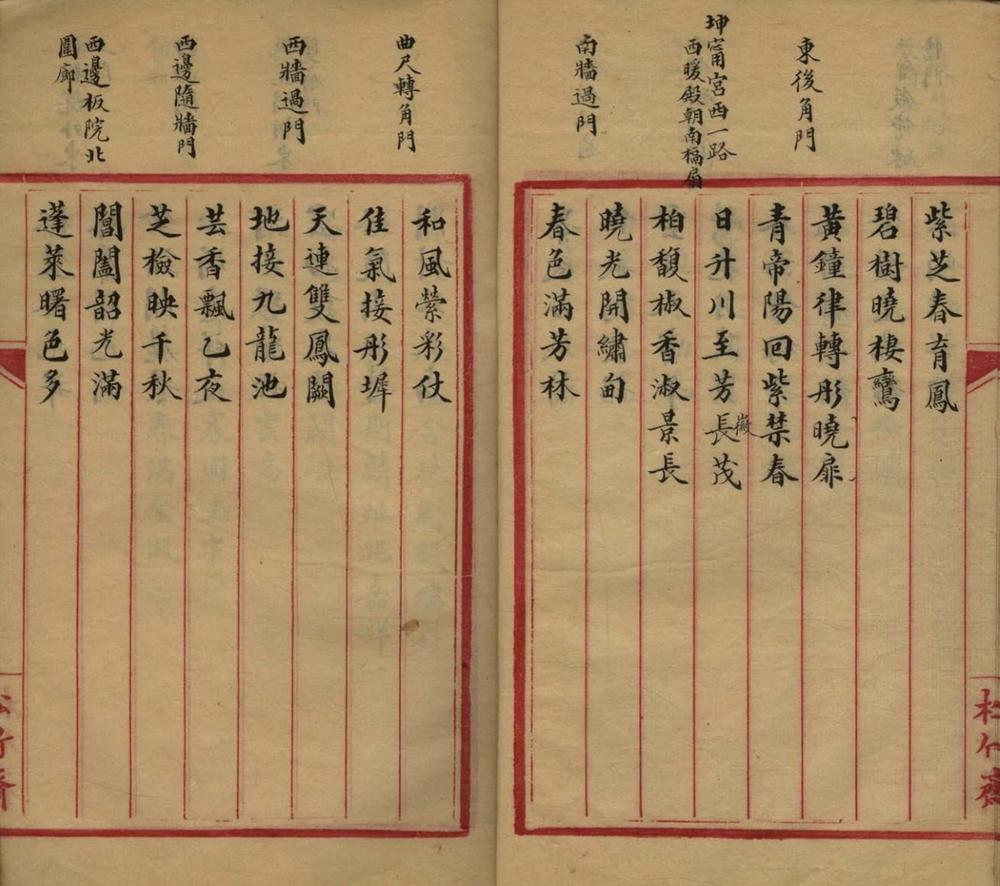 東後角門
坤甯宮西一路
西暖殿朝南槅扇
南牆過門
紫芝春育鳳
碧樹曉棲鸞
黃鐘律轉彤曉扉
青帝陽回紫禁春
日升川至芳長茂
徵
柏馥椒香淑景長
曉光開繡甸
春色滿芳林
曲尺轉角門
西牆過門
西邊隨牆門
西邊板院北
圍廊
和風縈彩仗
佳氣接彤墀
天連雙鳳闕
地接九龍池
芸香飄乙夜
芝檢映千秋
閶闔韶光滿
蓬萊曙色多
松竹齋
松竹齋